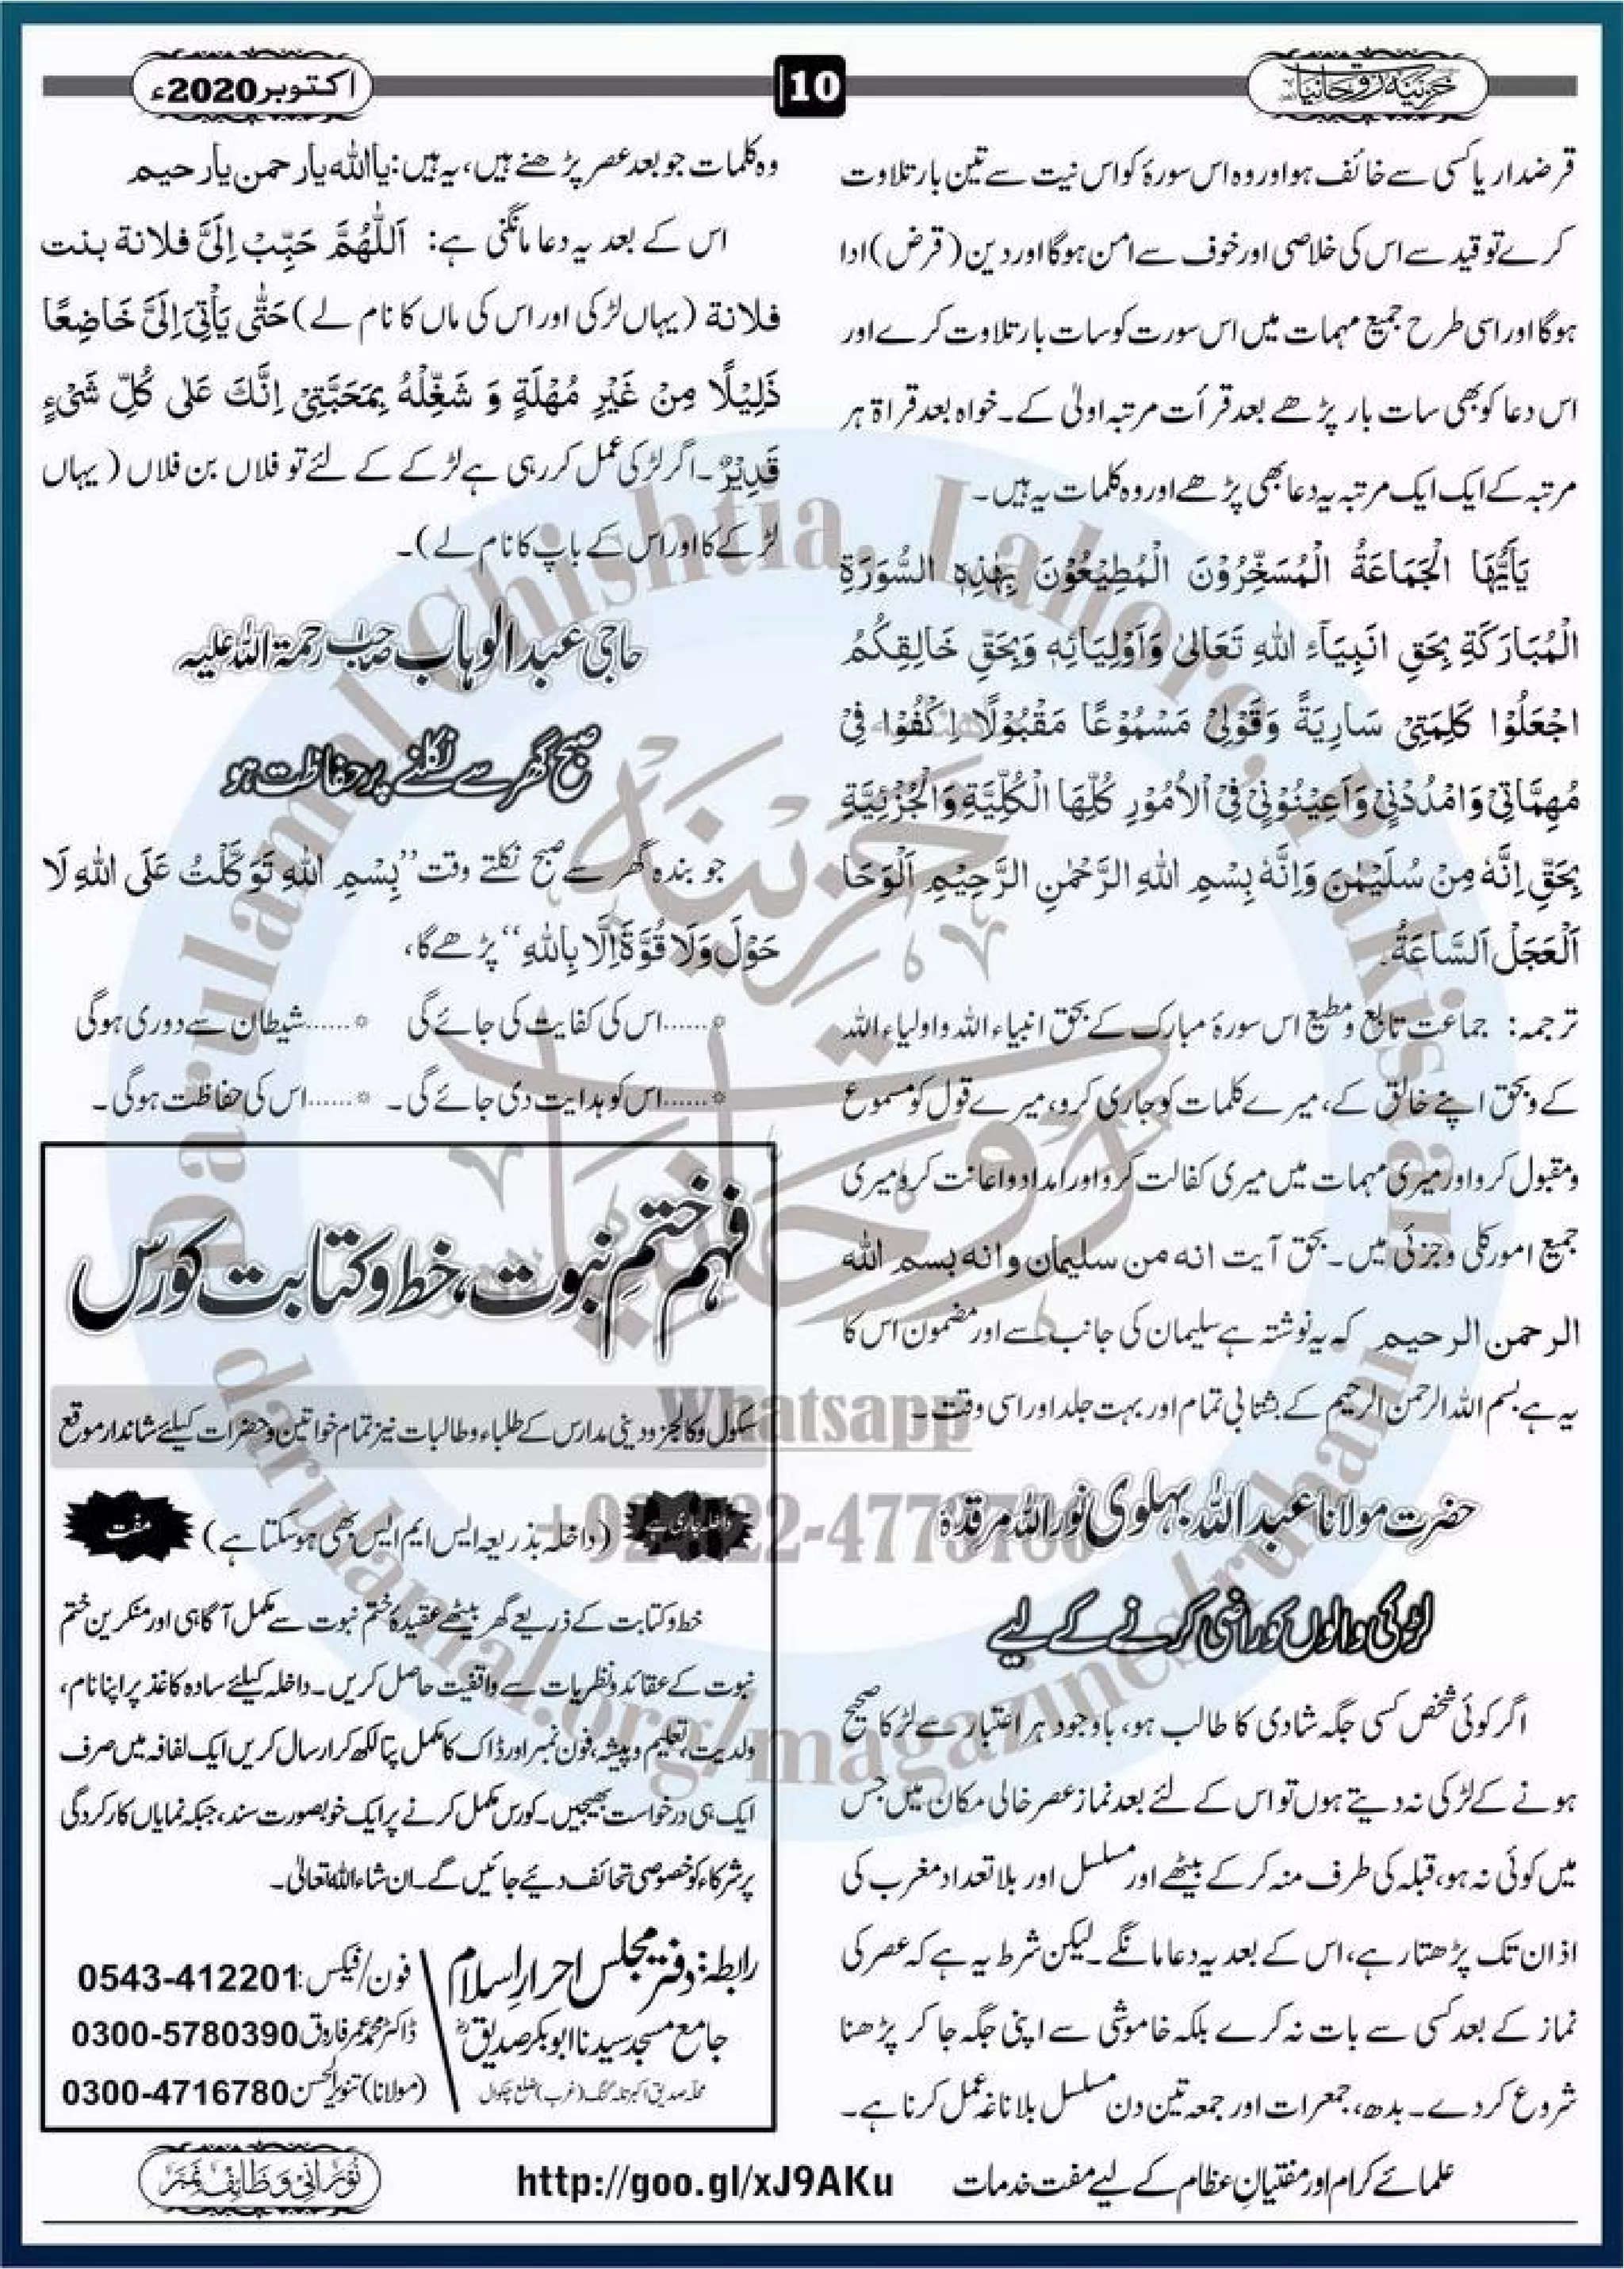 خزینۂ روحانیات
10
اکتوبر 2020ء
قرضدار یا کسی سے خائف ہو اور وہ اس سورۂ کو اس نیت سے تین بار تلاوت
کرے تو قید سے اس کی خلاصی اور خوف سے امن ہوگا اور دین (قرض) ادا
ہوگا اور اسی طرح جمیع مہمات میں اس سورت کو سات بار تلاوت کرے اور
اس دعا کو بھی سات بار پڑھے بعد قرأت مرتبہ اولیٰ کے۔ خواہ بعد قراۃ ہر
مرتبہ کے ایک ایک مرتبہ یہ دعا بھی پڑھے اور وہ کلمات یہ ہیں۔
يَأَيُّهَا الْجَمَاعَةُ الْمُسَخَّرُوْنَ الْمُطِيْعُوْنَ بِهٰذِهِ السُّوْرَةِ
الْمُبَارَكَةِ بِحَقِ انَبِيَآءِ اللهِ تَعَالىٰ وَاَوْلِيَائِهٖ وَبِحَقِّ خَالِقِكُمُ
اجْعَلُوْا كَلِمَتِيْ سَارِيَةً وَقَوْلِيْ مَسْمُوْعًا مَقْبُوْلًا اِكْفُوْا فِيْ
مُهِمَّاتِيْ وَامْدُدْنِيْ وَاَعِيْنُوْنِيْ فِيْ الْاُمُوْرِ كُلِّهَا الْكُلِّيَّةِ وَالْجُزْئِيَّةِ
بِحَقِّ اِنَّهٗ مِنْ سُلَيْمٰنَ وَاِنَّهٗ بِسْمِ اللهِ الرَّحْمٰنِ الرَّحِيْمِ اَلْوَحَا
اَلْعَجَلْ اَلسَّاعَةُ۔
ترجمہ: جماعت تابع و مطیع اس سورۂ مبارک کے بحق انبیاء اللہ و اولیاء اللہ
کے و بحق اپنے خالق کے، میرے کلمات کو جاری کرو، میرے قول کو مسموع
و مقبول کرو اور میری مہمات میں میری کفالت کرو اور امداد و اعانت کرو میری
جمیع امور کلی و جزئی میں۔ بحق آیت انه من سليمان وانه بسم الله
الرحمن الرحيم کہ یہ نوشتہ ہے سلیمان کی جانب سے اور مضمون اس کا
یہ ہے بسم اللہ الرحمن الرحیم کے بشتابی تمام اور بہت جلد اور اسی وقت۔
حضرت مولانا عبداللہ بہلوی نور اللہ مرقدہٗ
لڑکی والوں کو راضی کرنے کے لیے
اگر کوئی شخص کسی جگہ شادی کا طالب ہو، باوجود ہر اعتبار سے لڑکا صحیح
ہونے کے لڑکی نہ دیتے ہوں تو اس کے لئے بعد نماز عصر خالی مکان میں جس
میں کوئی نہ ہو، قبلہ کی طرف منہ کر کے بیٹھے اور مسلسل اور بلا تعداد مغرب کی
اذان تک پڑھتا رہے، اس کے بعد یہ دعا مانگے۔ لیکن شرط یہ ہے کہ عصر کی
نماز کے بعد کسی سے بات نہ کرے بلکہ خاموشی سے اپنی جگہ جا کر پڑھنا
شروع کردے۔ بدھ، جمعرات اور جمعہ تین دن مسلسل بلا ناغہ عمل کرنا ہے۔
وہ کلمات جو بعد عصر پڑھنے ہیں، یہ ہیں: یااللّٰہ یارحمن یارحیم
اس کے بعد یہ دعا مانگنی ہے: اَللّٰهُمَّ حَبِّبْ اِلَیَّ فلانة بنت
فلانة (یہاں لڑکی اور اس کی ماں کا نام لے) حَتّٰى يَأْتِيَ اِلَىَّ خَاضِعًا
ذَلِيْلًا مِنْ غَيْرِ مُهْلَةٍ وَ شَغِّلْهُ بِمَحَبَّتِيْ اِنَّكَ عَلٰى كُلِّ شَيْءٍ
قَدِيْرٌ۔ اگر لڑکی عمل کر رہی ہے لڑکے کے لئے تو فلاں بن فلاں (یہاں
لڑکے کا اور اس کے باپ کا نام لے)۔
حاجی عبدالوہاب صاحب رحمۃ اللہ علیہ
صبح گھر سے نکلنے پر حفاظت ہو
جو بندہ گھر سے صبح نکلتے وقت ”بِسْمِ اللهِ تَوَكَّلْتُ عَلَى اللهِ لَا
حَوْلَ وَلَا قُوَّةَ اِلَّا بِاللهِ“ پڑھے گا،
*……اس کی کفایت کی جائے گی *……شیطان سے دوری ہوگی
*……اس کو ہدایت دی جائے گی۔ *……اس کی حفاظت ہوگی۔
فہم ختمِ نبوت، خط و کتابت کورس
سکول و کالجز و دینی مدارس کے طلباء و طالبات نیز تمام خواتین و حضرات کیلئے شاندار موقع
داخلہ جاری ہے (داخلہ بذریعہ ایس ایم ایس بھی ہوسکتا ہے) مفت
خط و کتابت کے ذریعے گھر بیٹھے عقیدۂ ختم نبوت سے مکمل آگاہی اور منکرین ختم
نبوت کے عقائد و نظریات سے واقفیت حاصل کریں۔ داخلہ کیلئے سادہ کاغذ پر اپنا نام،
ولدیت، تعلیم و پیشہ، فون نمبر اور ڈاک کا مکمل پتا لکھ کر ارسال کریں ایک لفافہ میں صرف
ایک ہی درخواست بھیجیں۔ کورس مکمل کرنے پر ایک خوبصورت سند، جبکہ نمایاں کارکردگی
پر شرکاء کو خصوصی تحائف دیئے جائیں گے۔ ان شاء اللہ تعالیٰ۔
رابطہ: دفتر مجلس احرارِ اسلام
جامع مسجد سیدنا ابوبکر صدیقؓ
محلہ صدیق اکبر تلہ گنگ (غرب) ضلع چکوال
فون/فیکس: 0543-412201
ڈاکٹر محمد عمر فاروق 0300-5780390
(مولانا) تنویر الحسن 0300-4716780
علمائے کرام اور مفتیانِ عظام کے لیے مفت خدمات
http://goo.gl/xJ9AKu
نورانی وظائف نمبر
Darulamal Chishtia, Lahore, Pakistan
خزینۂ روحانیات
Whatsapp
darulamal.org/magazines/ruhani